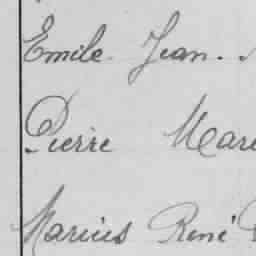 Emile Jean
Pierre
Marius René